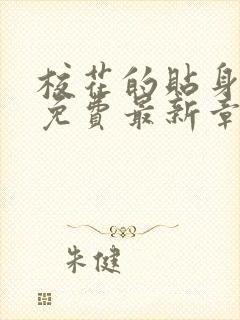 校花的貼身
免費最新章
朱健